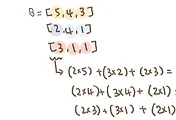 B = [5,4,3]
[2,4,1]
[3,1,1]
↳ (2×5)+(3×2)+(2×3) =
(2×4)+(3×4)+(2×1) =
(2×3)+(3×1)+(2×1)